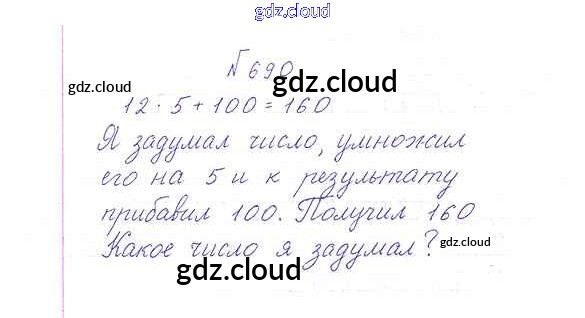 gdz.cloud
№ 690
gdz.cloud
gdz.cloud
12 · 5 + 100 = 160
Я задумал число, умножил
его на 5 и к результату
прибавил 100. Получил 160
Какое число я задумал?
gdz.cloud
gdz.cloud